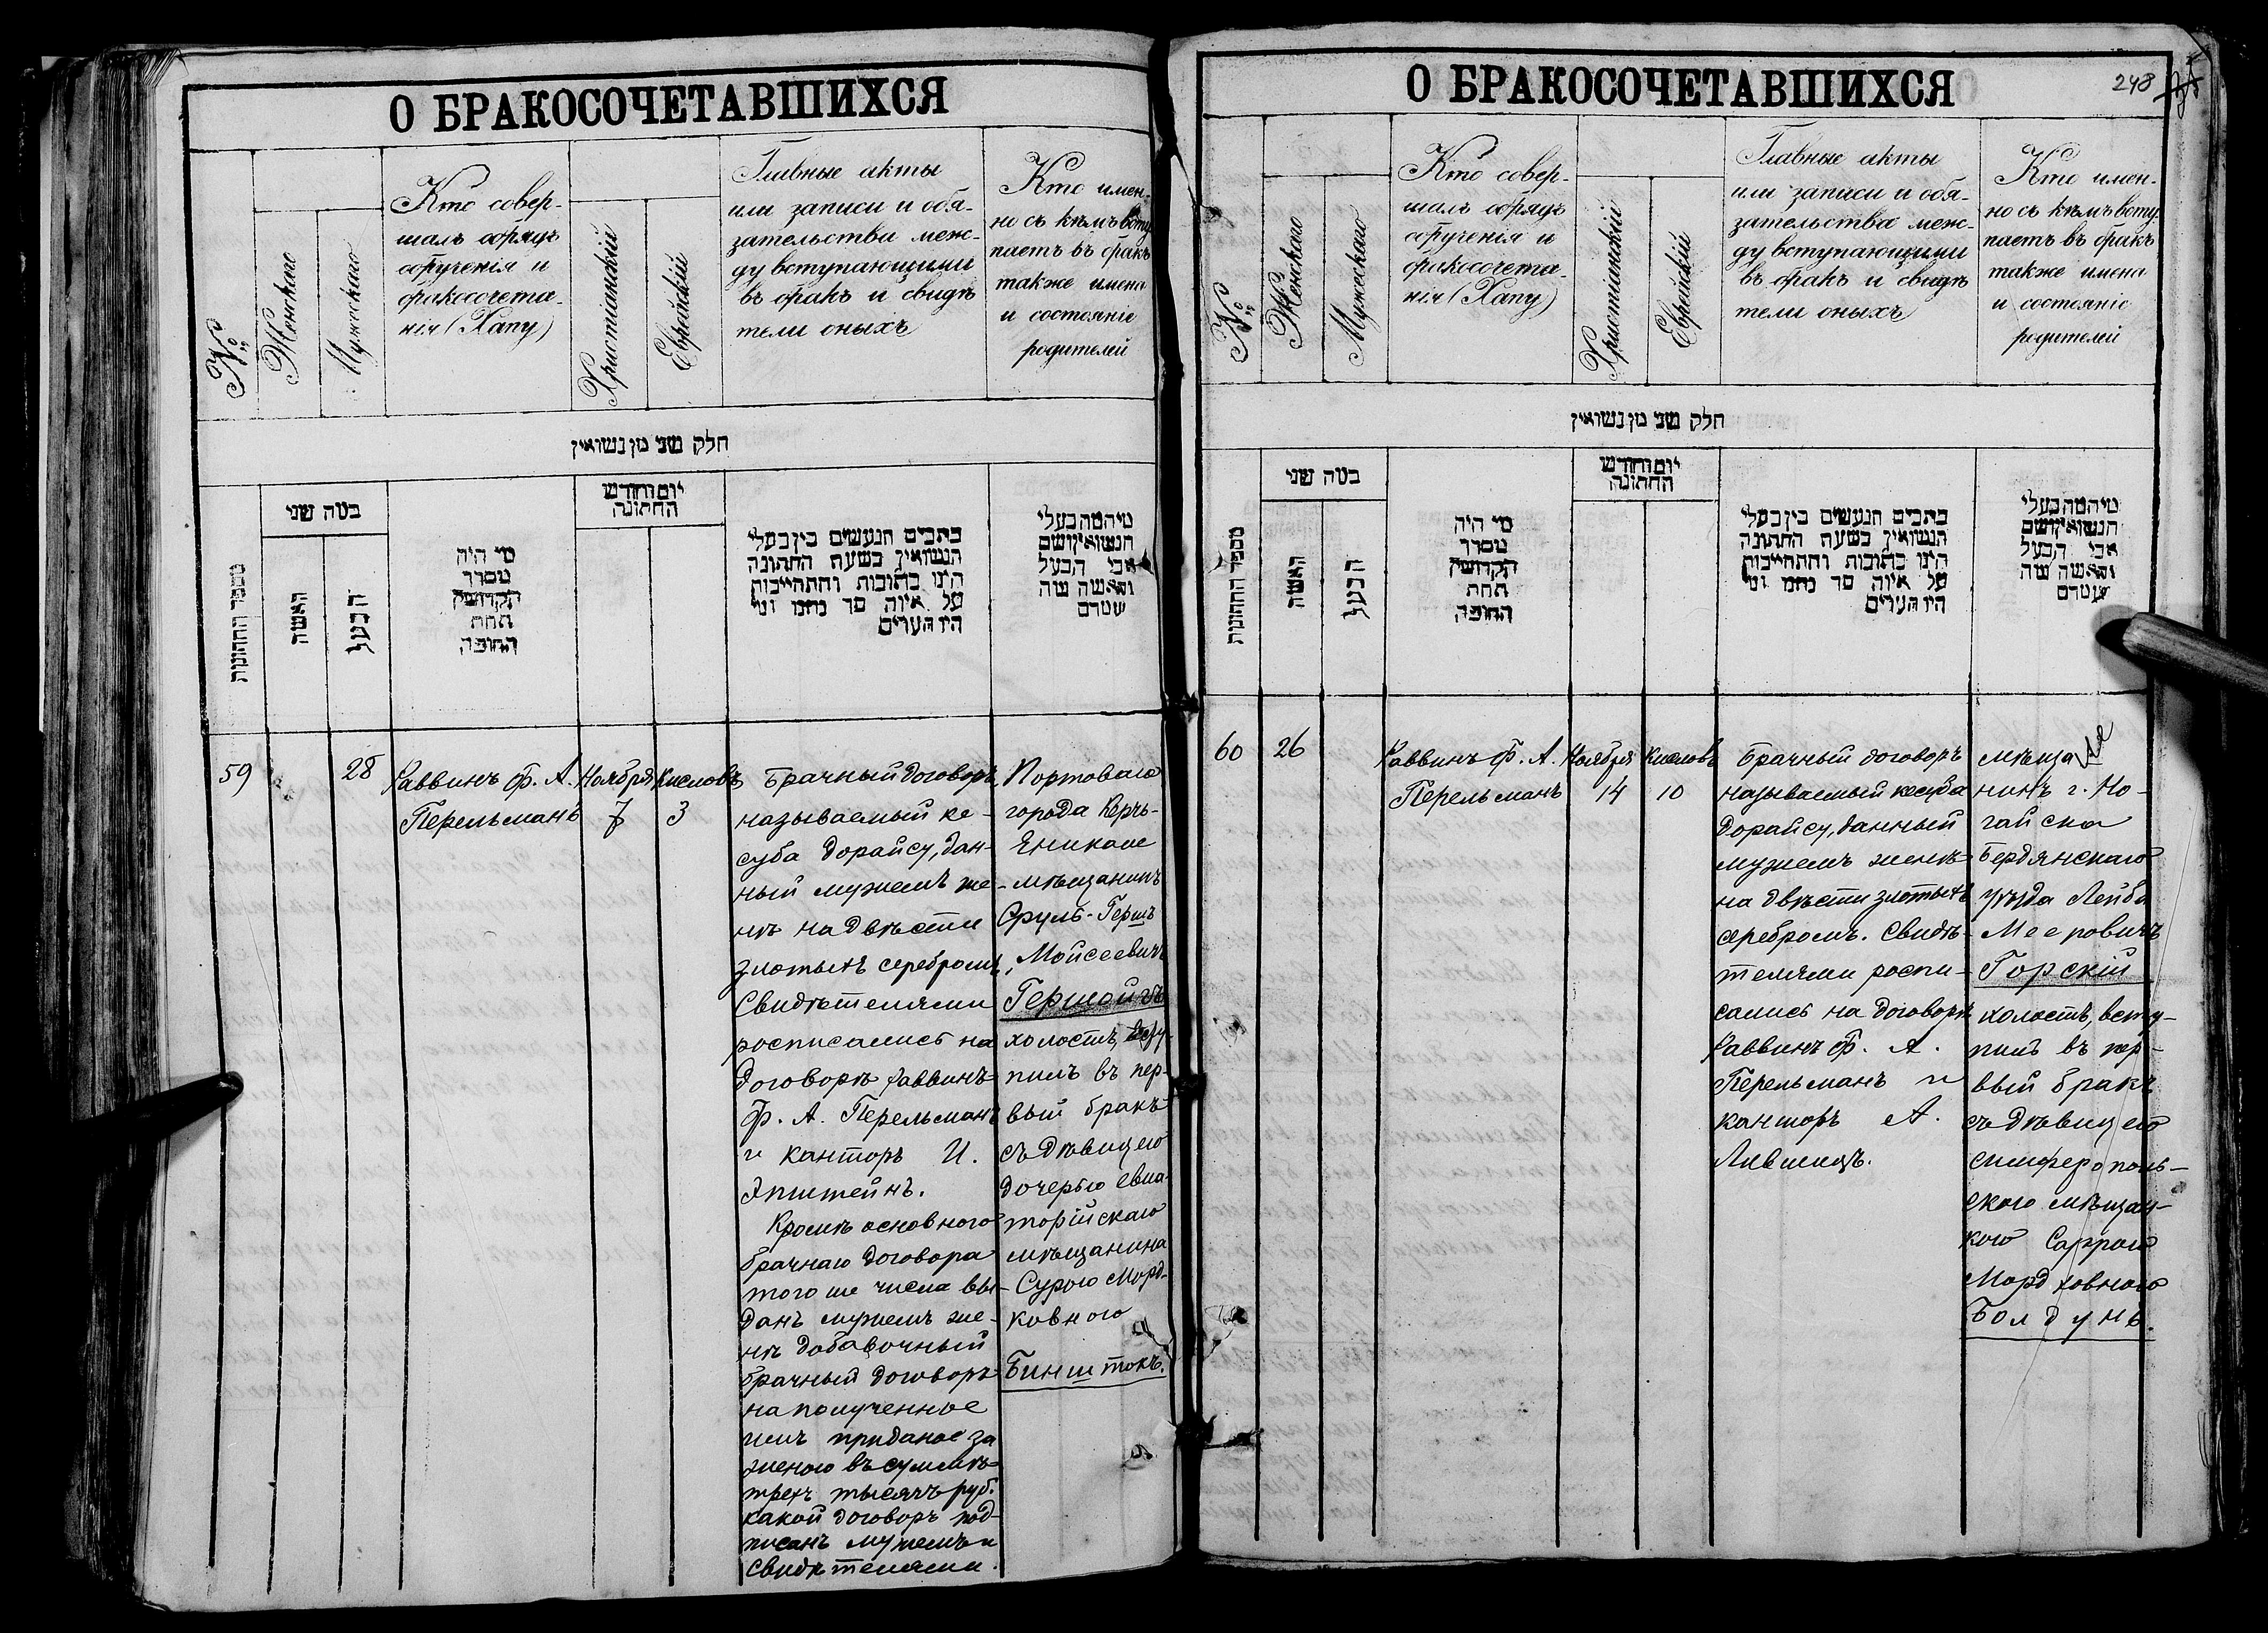 О БРАКОСОЧЕТАВШИХСЯ
№
Женскаго
Мужескаго
Кто совер-
шалъ обрядъ
обрученія и
бракосочета-
нія (Хапу)
Христіанскій
Еврейскій
Главные акты
или записи и обя-
зательства меж-
ду вступающими
въ бракъ и свидѣ
тели оныхъ
Кто имен-
но съ кѣмъ всту
паетъ въ бракъ
также имена
и состояніе
родителей
חלק שני מן נשואין
מספר החתונות
כמה שני
האשה
הבעל
מי היה
מסדר
הקדושין
תחת
החופה
יום וחודש
החתונה
כתבים הנעשים בין בעלי
הנשואין בשעת החתונה
היינו כתובות והתחייבות
על איזה סך נתנו ומי
היו העדים
מי המה בעלי
הנשואין ושם
אבי הבעל
והאשה מה
שמם
59
28
Раввинъ Ф. А.
Перельманъ
Ноября
7
Кисловъ
3
Брачный договоръ
называемый ке-
суба дорайсу, дан-
ный мужемъ же-
нѣ на двѣсти
злотыхъ серебромъ,
Свидѣтелями
росписались на
договорѣ раввинъ
Ф. А. Перельманъ
и канторъ И.
Эпштейнъ.
Кромѣ основного
брачнаго договора
того же числа вы-
данъ мужемъ же-
нѣ добавочный
брачный договоръ
на полученное
имъ приданое за
женою въ суммѣ
трехъ тысячъ руб.
какой договоръ под-
писанъ мужемъ и
свидѣтелями.
Портоваго
города Керчь-
Еникале
мѣщанинъ
Сруль-Гершъ
Мойсеевичъ
холостъ, всту-
пилъ въ пер-
вый бракъ
съ дѣвицею
дочерью Евпа-
торійскаго
мѣщанина
Сурою Морд-
ковною
Бинштокъ.
О БРАКОСОЧЕТАВШИХСЯ
248
№
Женскаго
Мужескаго
Кто совер-
шалъ обрядъ
обрученія и
бракосочета-
нія (Хапу)
Христіанскій
Еврейскій
Главные акты
или записи и обя-
зательства меж-
ду вступающими
въ бракъ и свидѣ
тели оныхъ
Кто имен-
но съ кѣмъ всту
паетъ въ бракъ
также имена
и состояніе
родителей
חלק שני מן נשואין
מספר החתונות
כמה שני
האשה
הבעל
מי היה
מסדר
הקדושין
תחת
החופה
יום וחודש
החתונה
כתבים הנעשים בין בעלי
הנשואין בשעת החתונה
היינו כתובות והתחייבות
על איזה סך נתנו ומי
היו העדים
מי המה בעלי
הנשואין ושם
אבי הבעל
והאשה מה
שמם
60
26
Раввинъ Ф. А.
Перельманъ
Ноября
14
Кисловъ
10
Брачный договоръ
называемый кесуба
дорайсу, данный
мужемъ женѣ
на двѣсти злотыхъ
серебромъ. Свидѣ-
телями роспи-
сались на договорѣ
раввинъ Ф. А.
Перельманъ и
канторъ А.
Лившицъ.
мѣща
нинъ г. Но-
гайска
Бердянскаго
уѣзда Лейба
Мееровичъ
Горскій
холостъ, всту-
пилъ въ пер-
вый бракъ
съ дѣвицею
симферополь-
скою мѣщан-
кою Саррою
Мордховною
Болдунъ.